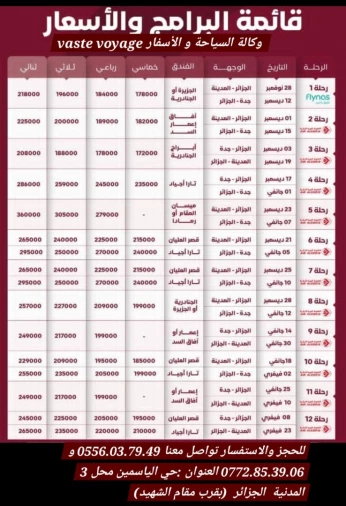 قائمة البرامج والأسعار
وكالة السياحة و الأسفار vaste voyage
الرحلة التاريخ الوجهة الفندق خماسي رباعي ثلاثي ثنائي
رحلة 1 flynas 28 نوفمبر الجزائر - المدينة 12 ديسمبر جدة - الجزائر الجزيرة أو الجنادرية 178000 184000 196000 218000
رحلة 2 01 ديسمبر الجزائر - المدينة 15 ديسمبر جدة - الجزائر آفاق إعمار السد 182000 189000 200000 225000
رحلة 3 03 ديسمبر الجزائر - جدة 19 ديسمبر المدينة - الجزائر أبراج الجنادرية 172000 178000 188000 208000
رحلة 4 17 ديسمبر الجزائر - المدينة 01 جانفي جدة - الجزائر تارا أجياد 235000 245000 259000 286000
رحلة 5 23 ديسمبر الجزائر - المدينة 07 جانفي جدة - الجزائر ميسان المقام أو رمادا - 279000 305000 360000
رحلة 6 21 ديسمبر الجزائر - المدينة 05 جانفي جدة - الجزائر قصر العليان 215000 225000 240000 265000
تارا أجياد 240000 250000 270000 295000
رحلة 7 25 ديسمبر الجزائر - المدينة 10 جانفي جدة - الجزائر قصر العليان 215000 225000 240000 265000
تارا أجياد 240000 250000 270000 295000
رحلة 8 28 ديسمبر الجزائر - المدينة 12 جانفي جدة - الجزائر الجنادرية أو الجزيرة 199000 209000 227000 257000
رحلة 9 14 جانفي الجزائر - جدة 30 جانفي المدينة - الجزائر إعمار أو آفاق السد - 199000 217000 249000
رحلة 10 18 جانفي الجزائر - المدينة 02 فيفري جدة - الجزائر قصر العليان 185000 195000 209000 229000
تارا أجياد 199000 205000 235000 255000
رحلة 11 25 جانفي الجزائر - جدة 10 فيفري المدينة - الجزائر إعمار أو آفاق السد - 199000 217000 249000
رحلة 12 08 فيفري الجزائر - جدة 23 فيفري المدينة - الجزائر قصر العليان 195000 205000 225000 245000
تارا أجياد 210000 220000 235000 265000
للحجز والاستفسار تواصل معنا 0556.03.79.49 و
0772.85.39.06 العنوان :حي الياسمين محل 3
المدنية الجزائر (بقرب مقام الشهيد)